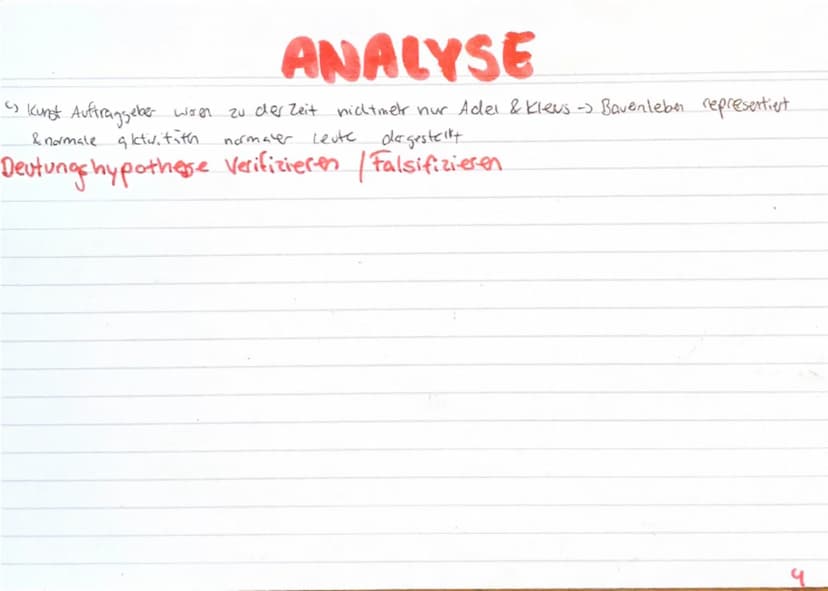 ANALYSE
↳ Kunst Auftraggeber waren zu der Zeit nichtmehr nur Adel & Klerus -> Bauernleben representiert
& normale aktivitäten normaler Leute dargestellt
Deutungshypothese Verifizieren / Falsifizieren
4